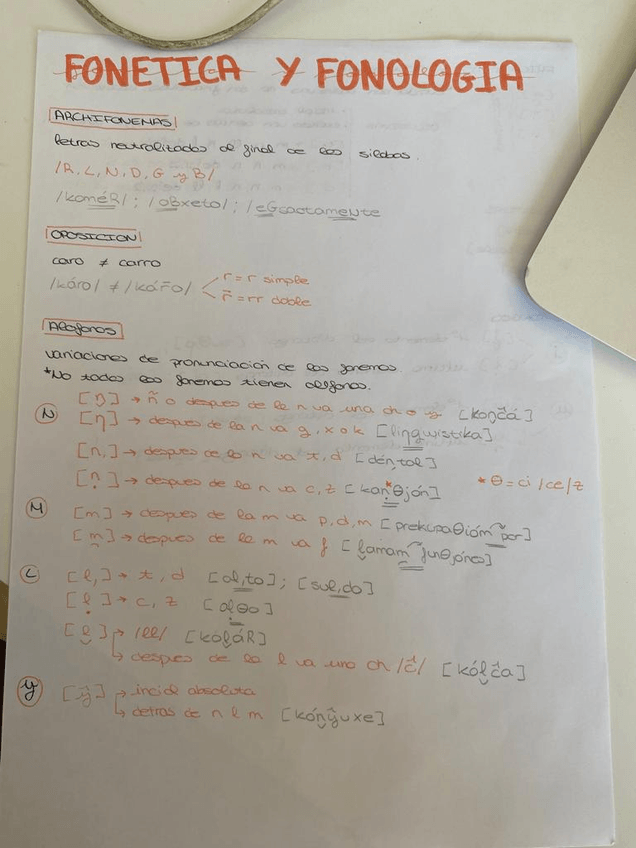 FONETICA Y FONOLOGIA
ARCHIFONEMAS
letras neutralizadas al final de las silabas.
/R, L, N, D, G y B/
/koméR/ ; /oBxeto/ ; /eGsactameNte
OPOSICION
caro ≠ carro
/káro/ ≠ /kár̄o/
r = r simple
r̄ = rr doble
Alofonos
variaciones de pronunciación de los fonemas.
*No todos los fonemas tienen alofonos.
N
→ ñ o despues de la n va una ch o y
[ŋ] → despues de la n va g, x o k [lingwistika]
[n̡] → despues de la n va t, d [dén̡tal]
[ṇ] → despues de la n va c, z [kaṇθjón]
* θ = ci / ce / z
M
[m] → despues de la m va p, d, m [prekupaθióm por]
→ despues de la m va f
L
[l̡] → t, d [al̡to] ; [sul̡do]
[ḷ] → c, z [alθo]
→ /ll/
↳ despues de la l va una ch /ĉ/
y
[ŷ] → inicial absoluta
↳ detras de n l m [kónŷuxe]